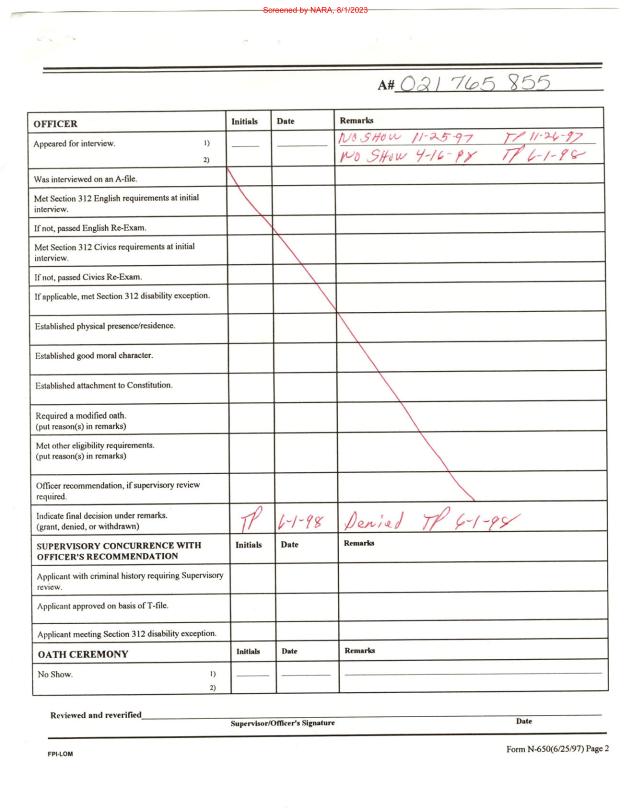 Screened by NARA, 8/1/2023
A# 021 765 855
OFFICER Initials Date Remarks
Appeared for interview. 1) NO SHOW 11-25-97 TP 11-26-97
2) NO SHOW 4-16-98 TP 6-1-98
Was interviewed on an A-file.
Met Section 312 English requirements at initial
interview.
If not, passed English Re-Exam.
Met Section 312 Civics requirements at initial
interview.
If not, passed Civics Re-Exam.
If applicable, met Section 312 disability exception.
Established physical presence/residence.
Established good moral character.
Established attachment to Constitution.
Required a modified oath.
(put reason(s) in remarks)
Met other eligibility requirements.
(put reason(s) in remarks)
Officer recommendation, if supervisory review
required.
Indicate final decision under remarks.
(grant, denied, or withdrawn) TP 6-1-98 Denied TP 6-1-98
SUPERVISORY CONCURRENCE WITH Initials Date Remarks
OFFICER'S RECOMMENDATION
Applicant with criminal history requiring Supervisory
review.
Applicant approved on basis of T-file.
Applicant meeting Section 312 disability exception.
OATH CEREMONY Initials Date Remarks
No Show. 1)
2)
Reviewed and reverified
Supervisor/Officer's Signature Date
FPI-LOM Form N-650(6/25/97) Page 2